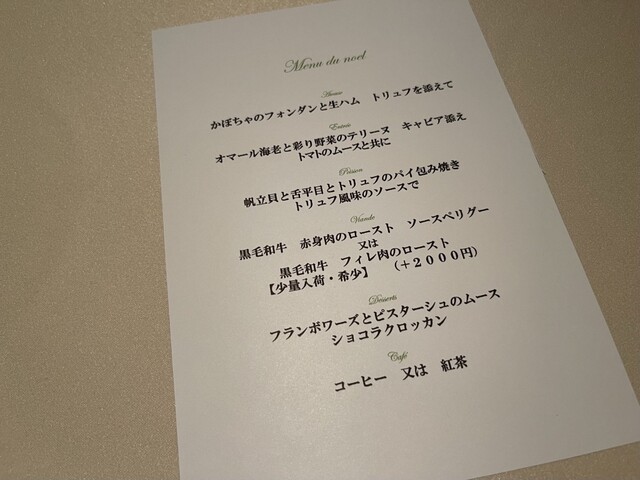 Menu du noel
かぼちゃのフォンダンと生ハム　トリュフを添えて
Entrée
オマール海老と彩り野菜のテリーヌ　キャビア添え
トマトのムースと共に
Poisson
帆立貝と舌平目とトリュフのパイ包み焼き
トリュフ風味のソースで
Viande
黒毛和牛　赤身肉のロースト　ソースペリグー
又は
黒毛和牛　フィレ肉のロースト
【少量入荷・希少】　（＋２０００円）
Desserts
フランボワーズとピスターシュのムース
ショコラクロッカン
Café
コーヒー　又は　紅茶